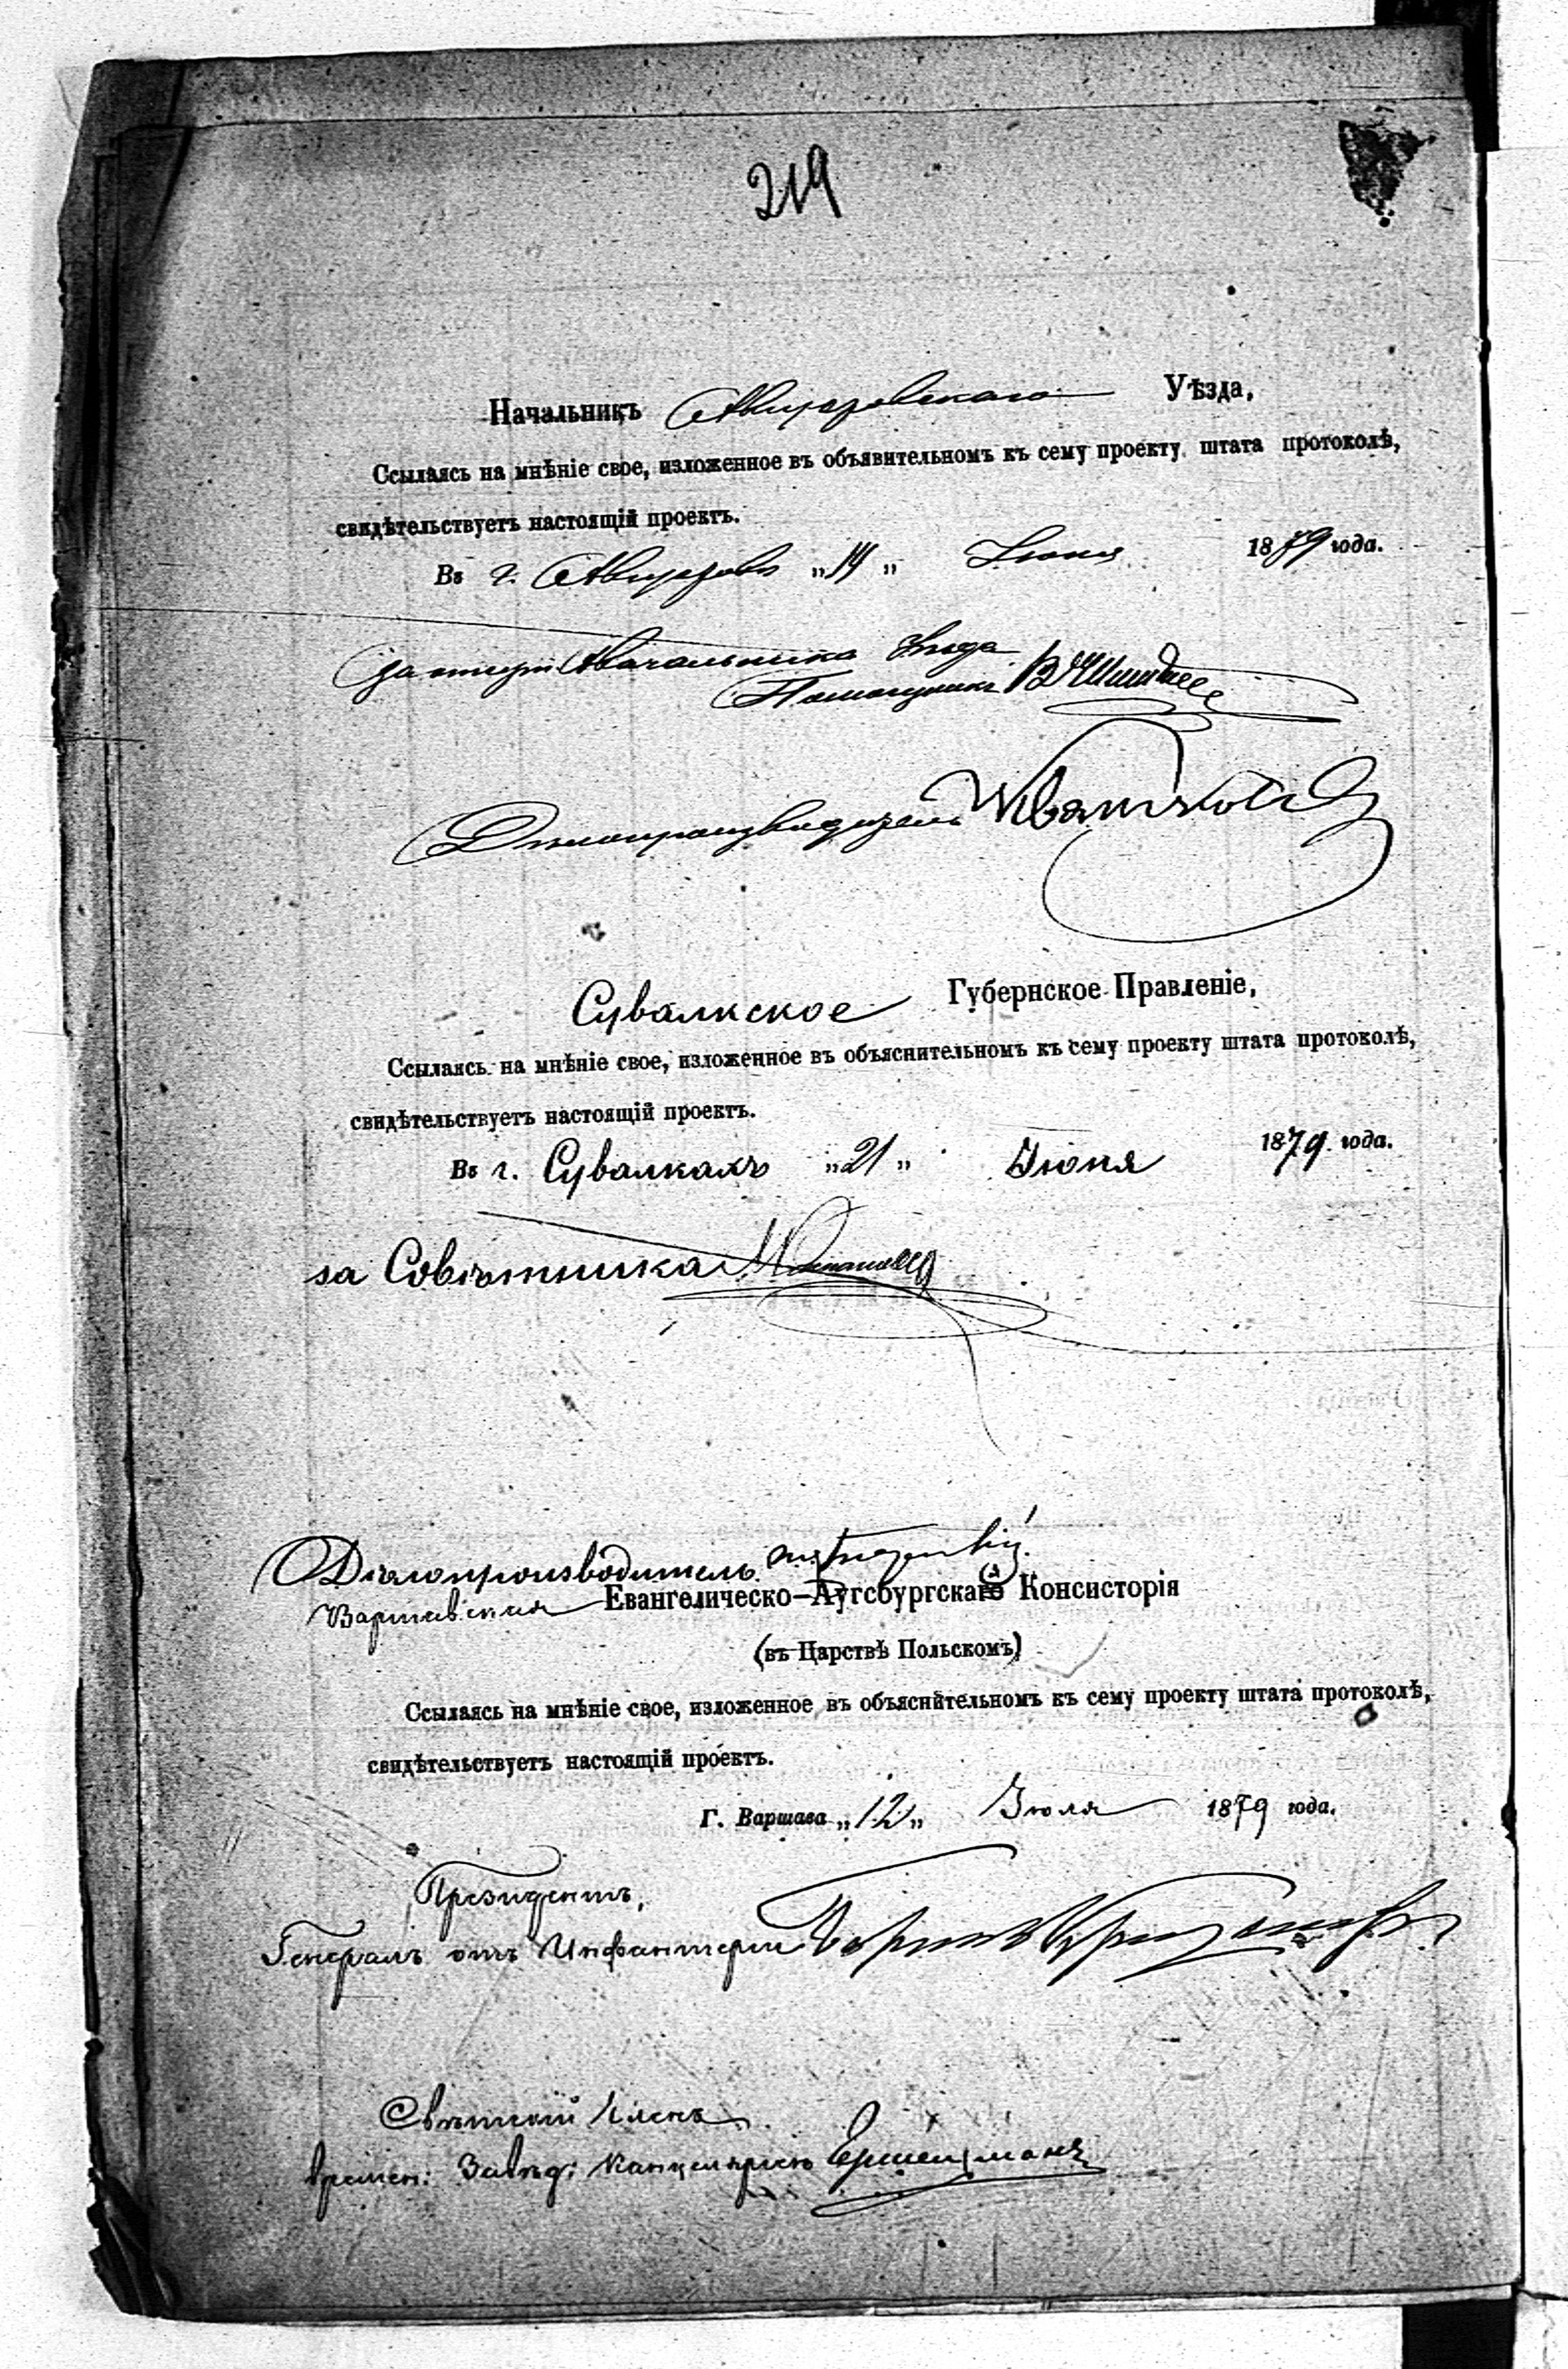 219
Начальникъ Августовскаго Уѣзда,
Ссылаясь на мнѣніе свое, изложенное въ объявительномъ къ сему проекту штата протоколѣ,
свидѣтельствуетъ настоящій проектъ.
Въ г. Августовѣ „14„ Іюня 1879 года.
Начальника Уѣзда
Помощникъ
Дѣлопроизводитель
Сувалкское Губернское Правленіе,
Ссылаясь на мнѣніе свое, изложенное въ объяснительномъ къ сему проекту штата протоколѣ,
свидѣтельствуетъ настоящій проектъ.
Въ г. Сувалкахъ „21„ Іюня 1879 года.
за Совѣтника
Дѣлопроизводитель
Варшавская Евангелическо-Аугсбургская Консисторія
(въ Царствѣ Польскомъ)
Ссылаясь на мнѣніе свое, изложенное въ объяснительномъ къ сему проекту штата протоколѣ,
свидѣтельствуетъ настоящій проектъ.
Г. Варшава „12„ Іюля 1879 года.
Президентъ,
Генералъ отъ Инфантеріи
Свѣтскій Членъ
времен: Завѣд: Канцеляріею